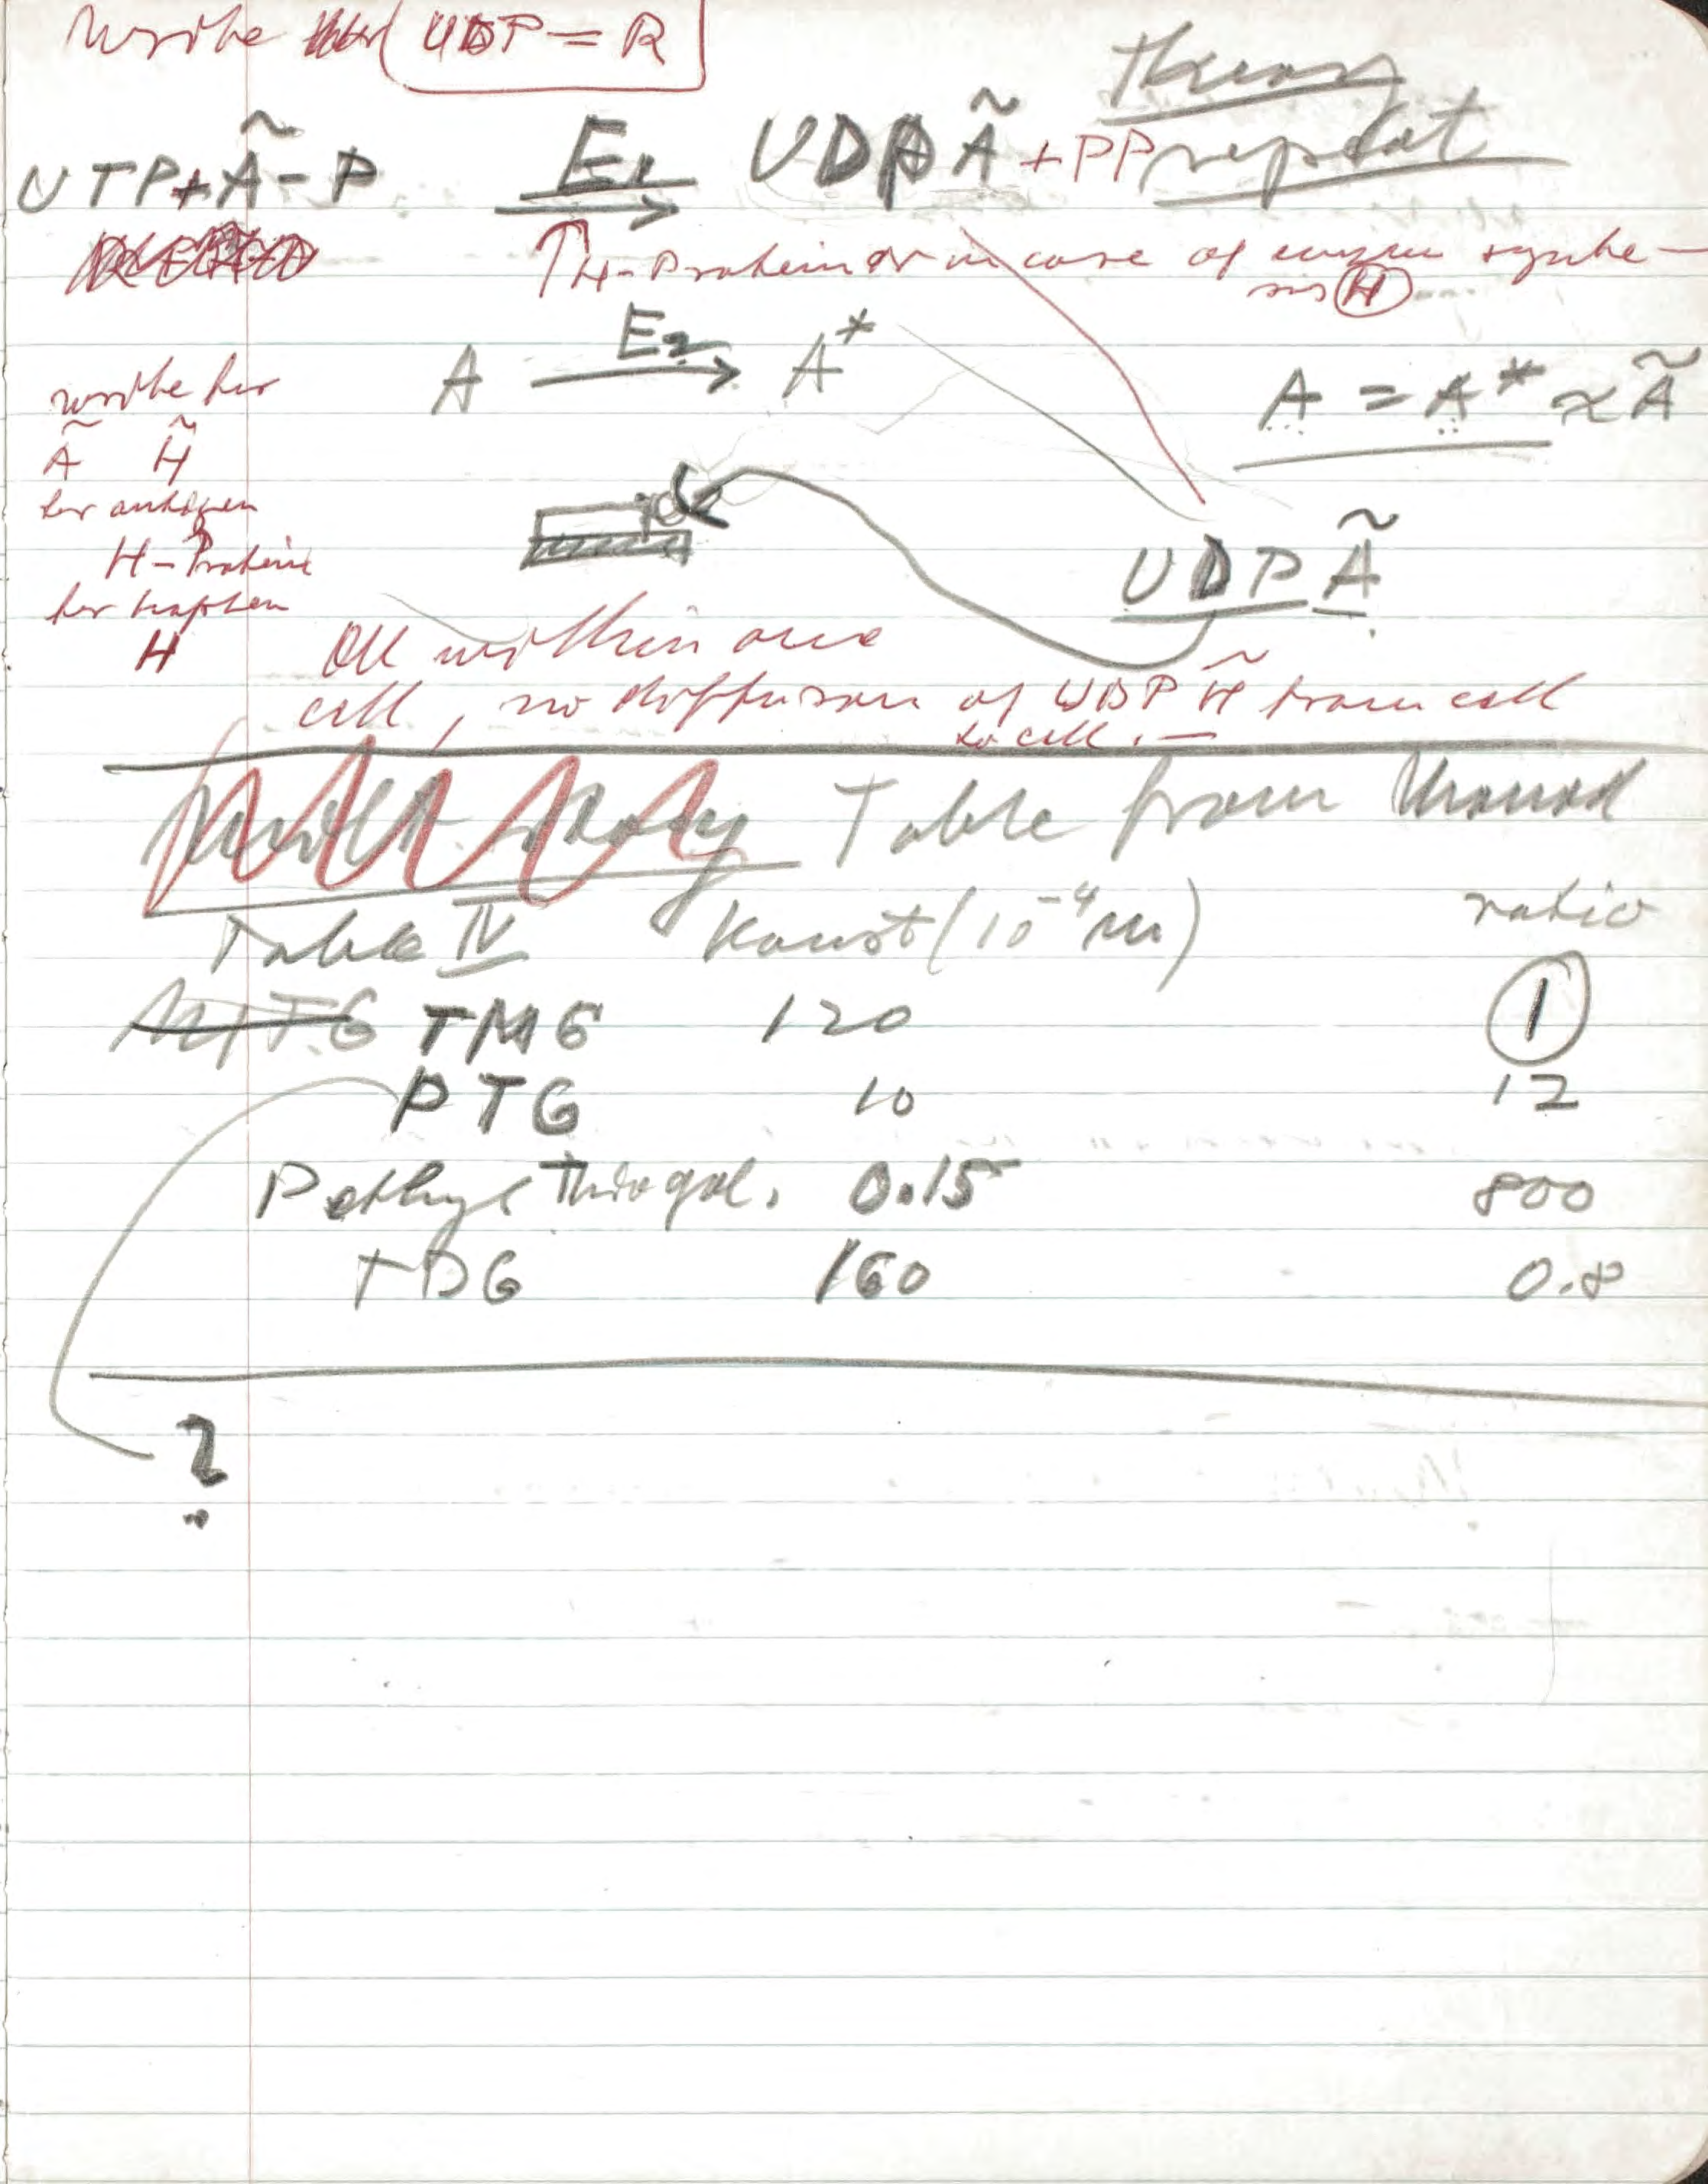 write UDP = R
Theory
repeat
UTP + Ã - P E₁ → UDPÃ + PP
↑ H-Protein or in case of enzym synthe-
sis H
A E₂ → A*
A = A* ≈ Ã
write for
Ã H̃
for antigen
H-Protein
for hapten
H
UDPÃ
All within one
cell, no diffusion of UDP H̃ from cell
to cell. —
Table from Monod
Table IV Konst (10⁻⁴ m) ratio
MTG TMG 120 1
PTG 10 12
Pethyl Thiogal. 0.15 800
TDG 160 0.8
?